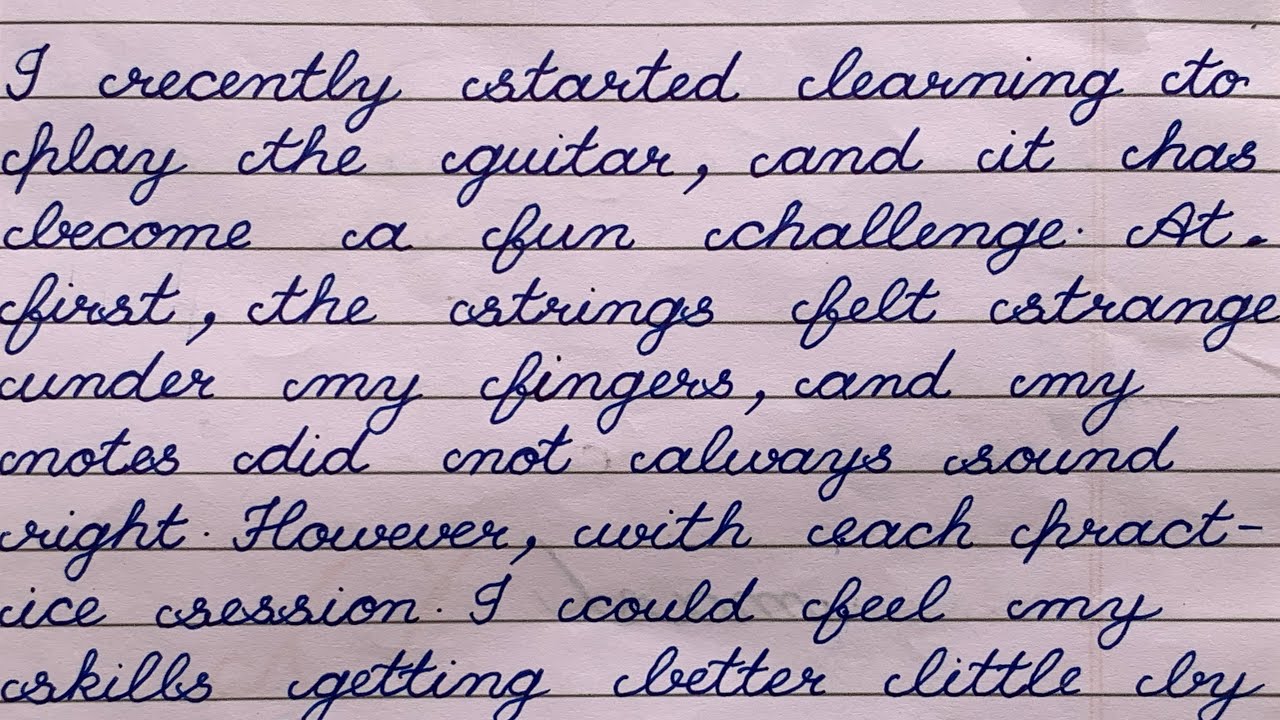 I recently started learning to
play the guitar, and it has
become a fun challenge. At.
first, the strings felt strange
under my fingers, and my
notes did not always sound
right. However, with each pract-
ice session. I could feel my
skills getting better little by